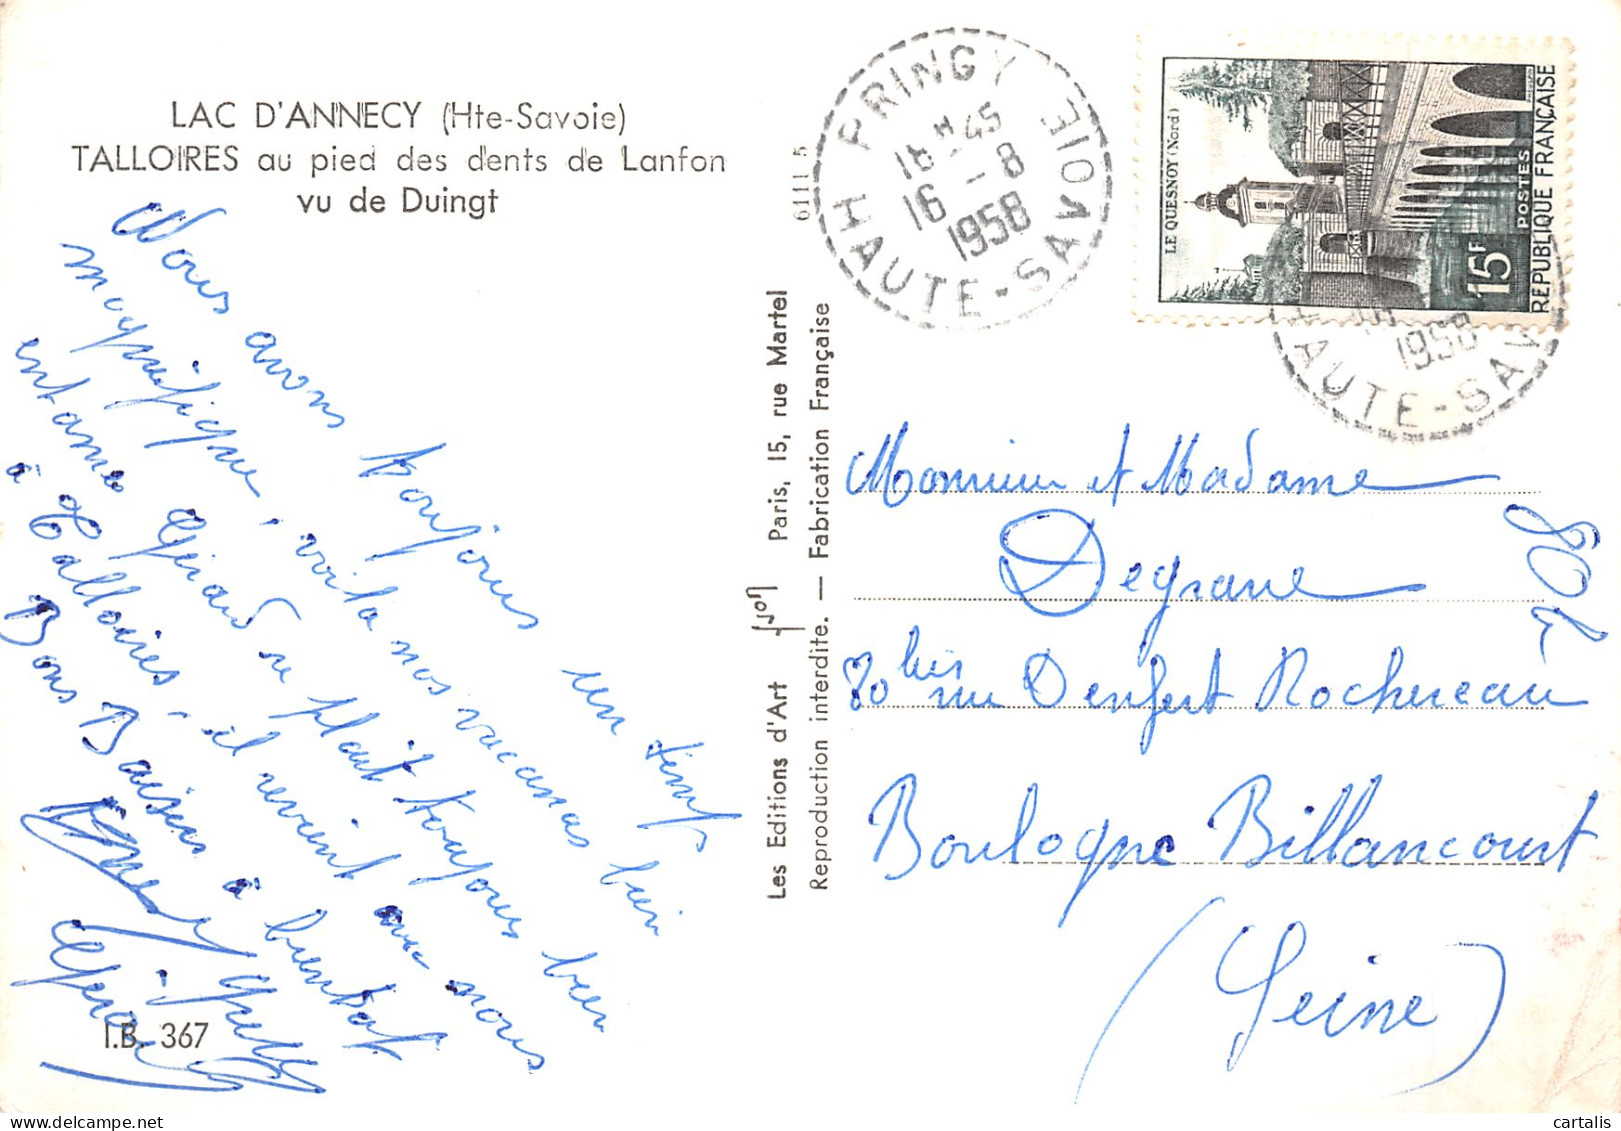 LAC D'ANNECY (Hte-Savoie)
TALLOIRES au pied des dents de Lanfon
vu de Duingt
Nous avons toujours un temps
magnifique, voila nos vacances bien
entamées Gérard se plait toujours bien
à Talloires, il revient avec nous
Bons Baisers à bientot
Gérard
I.B. 367
Les Editions d'Art Yvon Paris, 15, rue Martel
Reproduction interdite. — Fabrication Française
6111 5
PRINGY
18H45
16-8
1958
HAUTE-SAVOIE
LE QUESNOY (Nord)
15F
POSTES
REPUBLIQUE FRANÇAISE
1958
HAUTE-SAV
Monsieur et Madame
Degrave
80 bis rue Denfert Rochereau
Boulogne Billancourt
(Seine)
cartalis